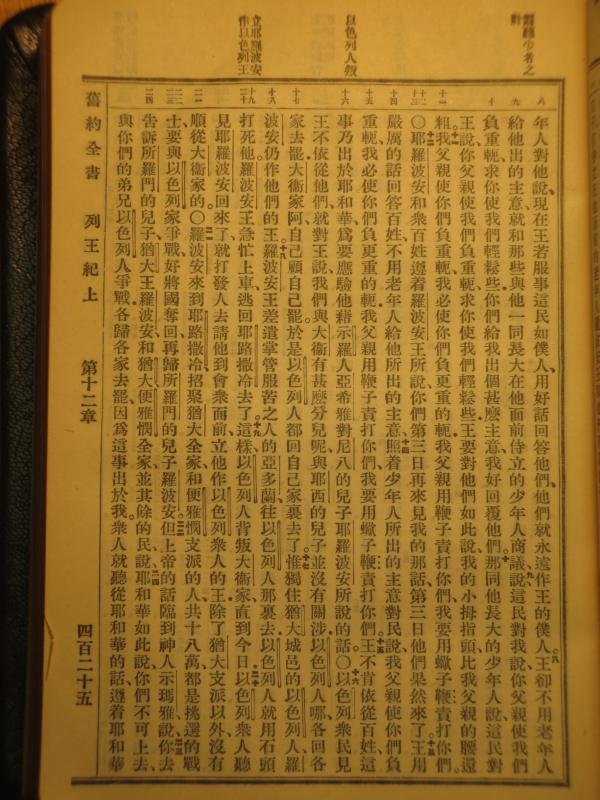 聽少者之
計
以色列人叛
立耶羅波安
作以色列王
八
九
十
十一
十二
十三
十四
十五
十六
十七
十八
十九
二十
二一
二二
二三
二四
年人對他說、現在王若服事這民如僕人、用好話回答他們、他們就永遠作王的僕人。王卻不用老年人
給他出的主意、就和那些與他一同長大在他面前侍立的少年人商議、說、這民對我說、你父親使我們
負重軛、求你使我們輕鬆些、你們給我出個甚麼主意、我好回覆他們。那同他長大的少年人說、這民對
王說、你父親使我們負重軛、求你使我們輕鬆些、王要對他們如此說、我的小拇指頭比我父親的腰還
粗、我父親使你們負重軛、我必使你們負更重的軛、我父親用鞭子責打你們、我要用蠍子鞭責打你們。
〇耶羅波安和衆百姓遵着羅波安王所說、你們第三日再來見我的那話、第三日他們果然來了。王用
嚴厲的話回答百姓、不用老年人給他所出的主意、照着少年人所出的主意對民說、我父親使你們負
重軛、我必使你們負更重的軛、我父親用鞭子責打你們、我要用蠍子鞭責打你們。王不肯依從百姓、這
事乃出於耶和華、爲要應驗他藉示羅人亞希雅對尼八的兒子耶羅波安所說的話。〇以色列衆民見
王不依從他們、就對王說、我們與大衞有甚麼分兒呢、與耶西的兒子並沒有關涉、以色列人哪、各回各
家去罷、大衞家阿、自己顧自己罷、於是以色列人都回自己家裏去了。惟獨住猶大城邑的以色列人、羅
波安仍作他們的王。羅波安王差遣掌管服苦之人的亞多蘭、往以色列人那裏去、以色列人就用石頭
打死他、羅波安王急忙上車、逃回耶路撒冷去了。這樣以色列人背叛大衞家、直到今日。以色列衆人聽
見耶羅波安回來了、就打發人去請他到會衆面前、立他作以色列衆人的王、除了猶大支派以外、沒有
順從大衞家的。〇羅波安來到耶路撒冷、招聚猶大全家和便雅憫支派的人、共十八萬、都是挑選的戰
士、要與以色列家爭戰、好將國奪回、再歸所羅門的兒子羅波安。但上帝的話臨到神人示瑪雅、說、你去
告訴所羅門的兒子猶大王羅波安、和猶大便雅憫全家、並其餘的民、說、耶和華如此說、你們不可上去
與你們的弟兄以色列人爭戰、各歸各家去罷、因爲這事出於我。衆人就聽從耶和華的話、遵着耶和華
舊約全書 列王紀上 第十二章 四百二十五